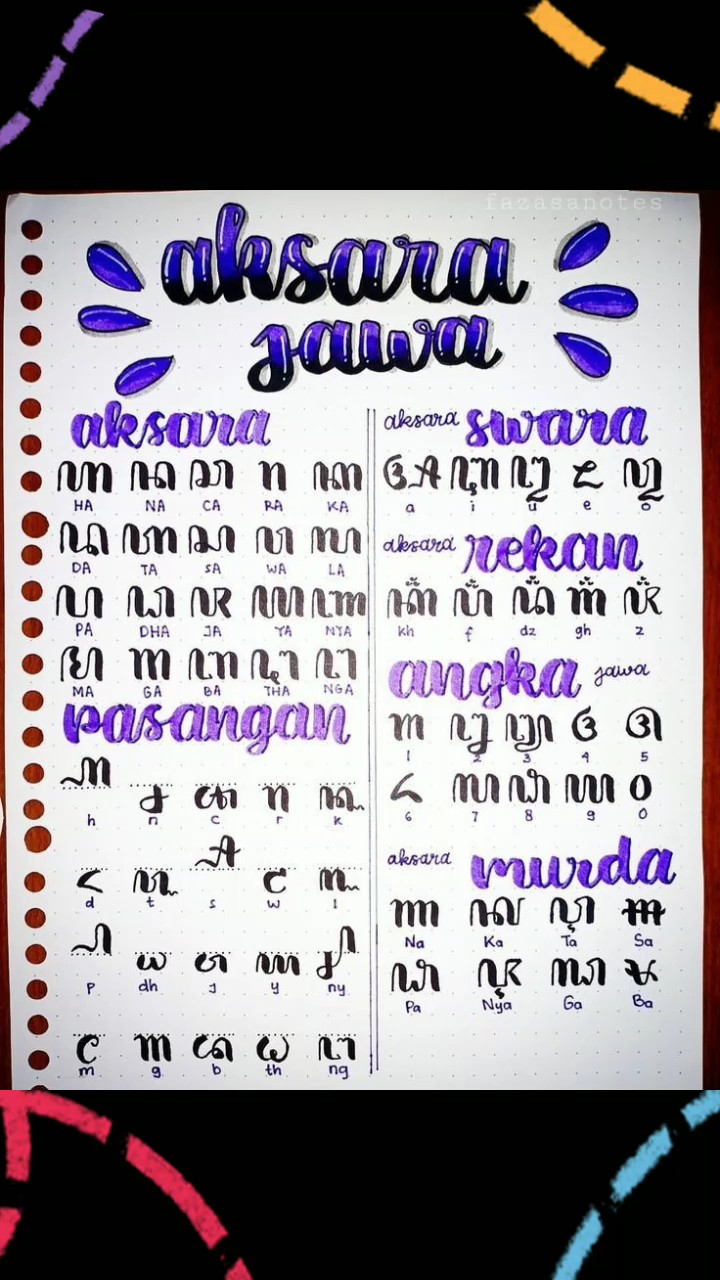 fazasanotes
aksara
jawa
aksara
ꦲ ꦤ ꦕ ꦫ ꦏ
HA NA CA RA KA
ꦢ ꦠ ꦱ ꦮ ꦭ
DA TA SA WA LA
ꦥ ꦝ ꦗ ꦪ ꦚ
PA DHA JA YA NYA
ꦩ ꦒ ꦧ ꦛ ꦔ
MA GA BA THA NGA
pasangan
꧀ꦲ ꧀ꦤ ꧀ꦕ ꧀ꦫ ꧀ꦏ
h n c r k
꧀ꦢ ꧀ꦠ ꧀ꦱ ꧀ꦮ ꧀ꦭ
d t s w l
꧀ꦥ ꧀ꦝ ꧀ꦗ ꧀ꦪ ꧀ꦚ
p dh J y ny
꧀ꦩ ꧀ꦒ ꧀ꦧ ꧀ꦛ ꧀ꦔ
m g b th ng
aksara swara
ꦄ ꦆ ꦈ ꦌ ꦎ
a i u e o
aksara rekan
ꦏ꦳ ꦥ꦳ ꦢ꦳ ꦒ꦳ ꦗ꦳
kh f dz gh z
angka jawa
꧑ ꧒ ꧓ ꧔ ꧕
1 2 3 4 5
꧖ ꧗ ꧘ ꧙ ꧐
6 7 8 9 0
aksara murda
ꦟ ꦑ ꦡ ꦯ
Na Ka Ta Sa
ꦦ ꦘ ꦓ ꦨ
Pa Nya Ga Ba